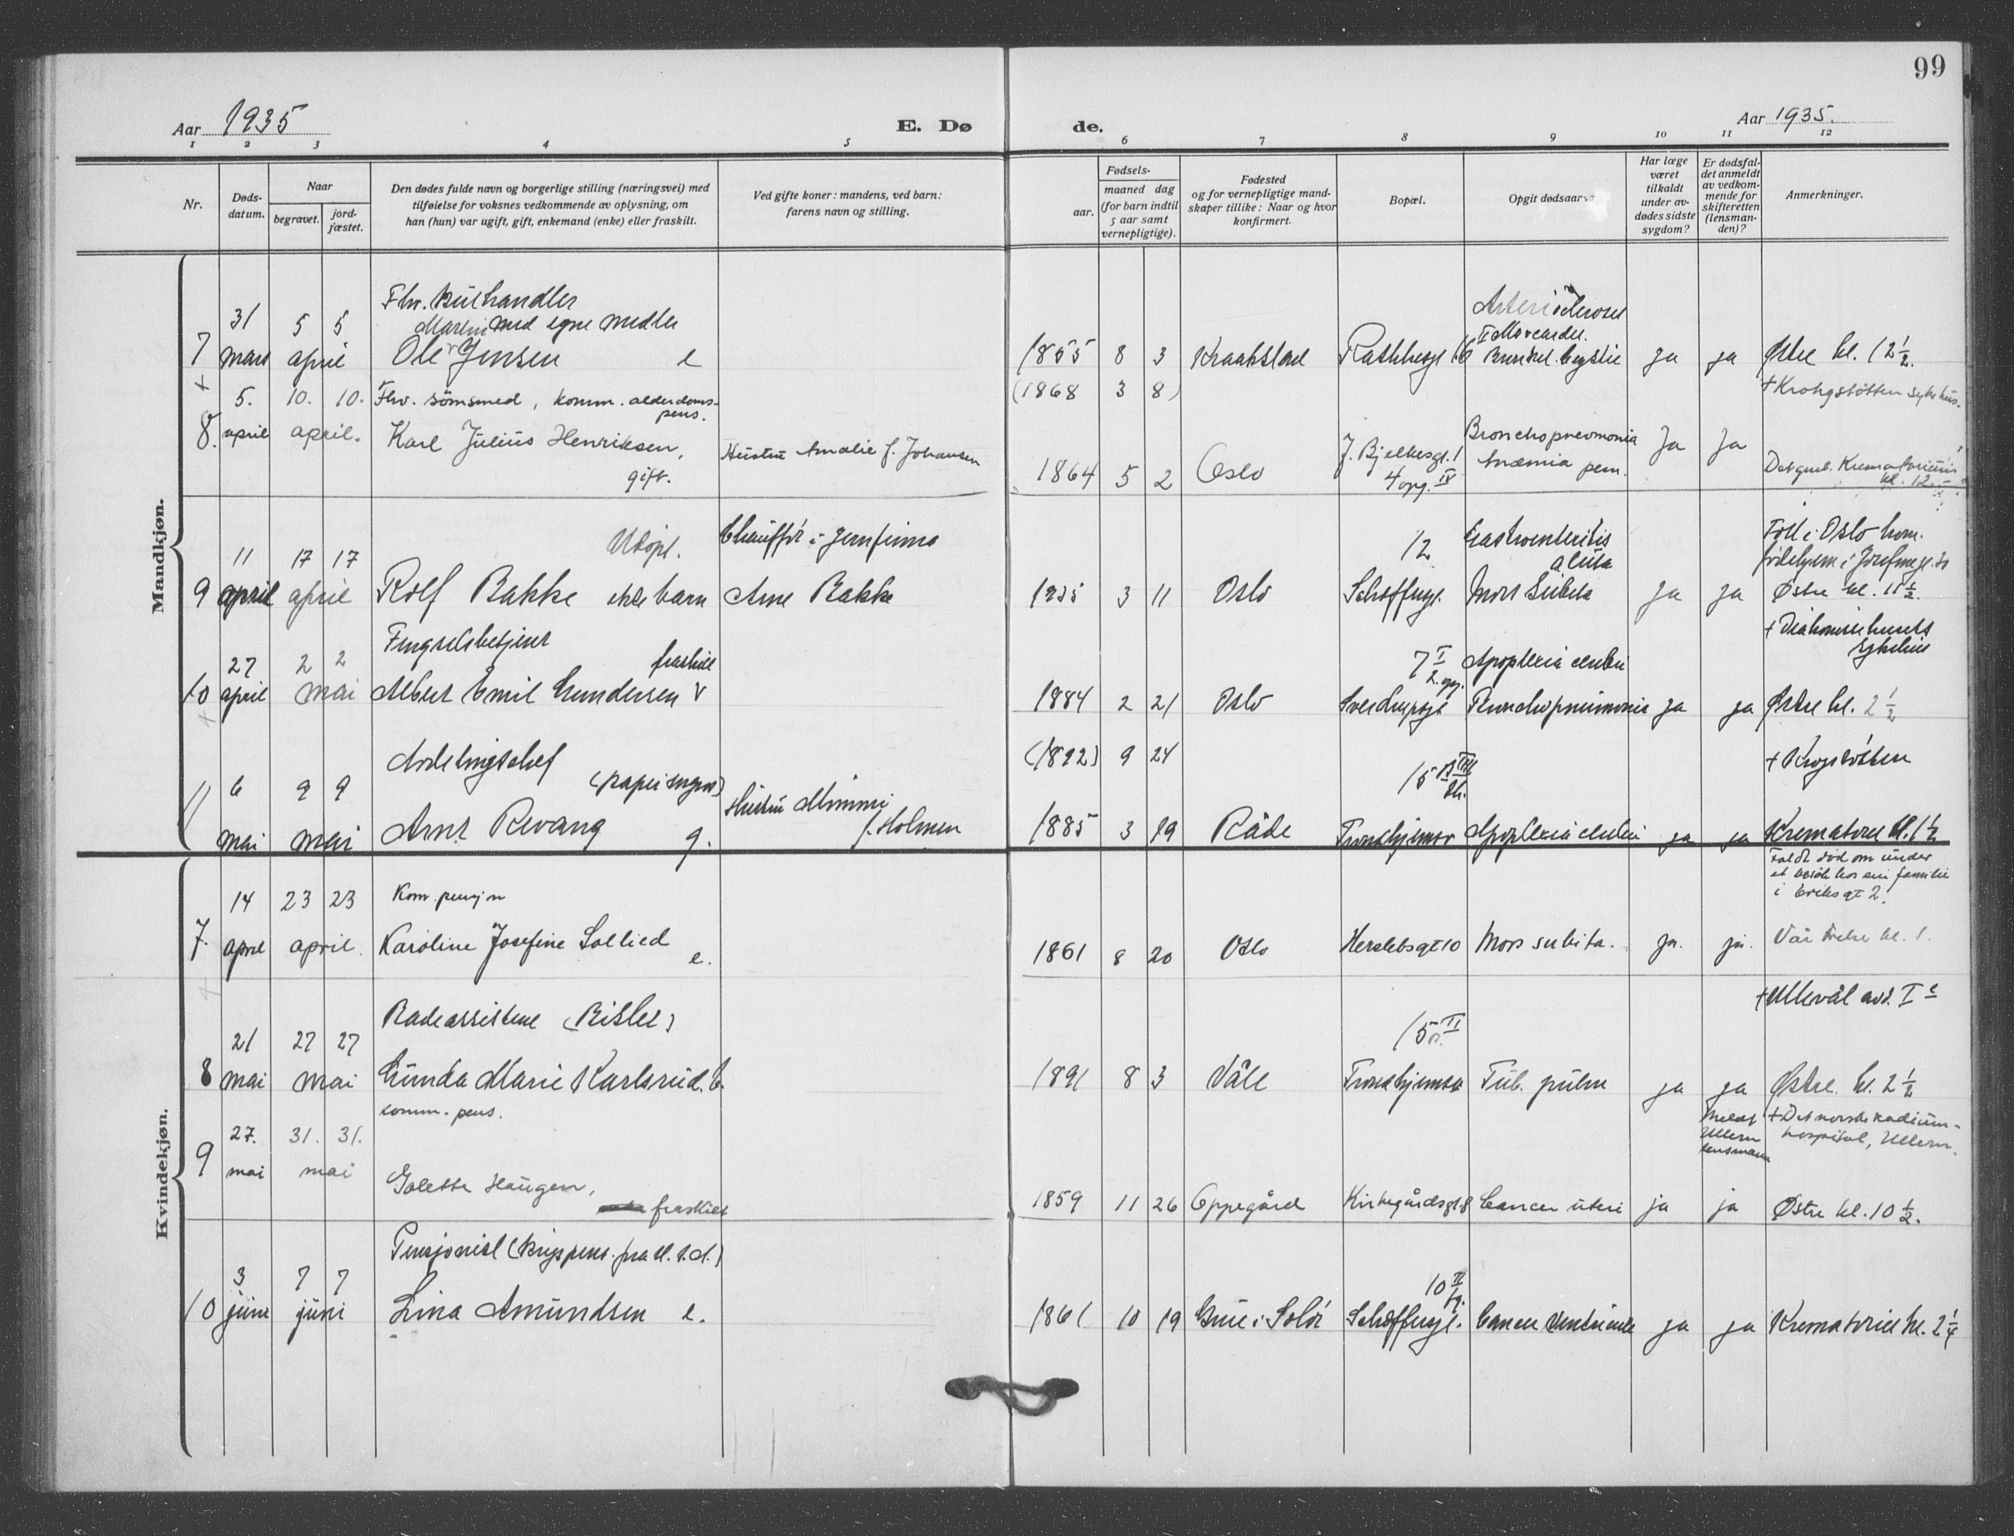 99
Aar 1935
E. Dø
de.
Aar 1935.
1 2 3 4 5 6 7 8 9 10 11 12
Nr.
Døds-
datum.
Naar
begravet.
jord-
fæstet.
Den dødes fulde navn og borgerlige stilling (næringsvei) med
tilføielse for voksnes vedkommende av oplysning, om
han (hun) var ugift, gift, enkemand (enke) eller fraskilt.
Ved gifte koner: mandens, ved barn:
farens navn og stilling.
Fødsels-
aar.
maaned dag
(for barn indtil
5 aar samt
vernepligtige).
Fødested
og for vernepligtige mand-
skaper tillike: Naar og hvor
konfirmert.
Bopæl.
Opgit dødsaarsak
Har læge
været
tilkaldt
under av-
dødes sidste
sygdom?
Er dødsfal-
det anmeldt
av vedkom-
mende for
skifteretten
(lensman-
den)?
Anmerkninger.
Mandkjøn.
Fhv.
Martin med egne midler
31 5 5
7 mars april Ole Jensen e
1855 8 3 Kraakstad 16 ja ja Østre kl. 12 1/2.
(1868 3 8)
+ Krohgstøtten sykehus.
5. 10. 10. Fhv. sømsmed, komm. alderdoms-
pens.
8. april april. Karl Julius Henriksen,
gift.
Hustru Amalie f. Johansen
1864 5 2 Oslo J. Bjelkesgt. 1
4 opg. IV
Bronchopneumonia
Anæmia pern.
Ja Ja
Krematorium
kl. 12.
Utdpt.
Chauffør i
11 17 17
9 april april Rolf Bakke ekte barn Arne Bakke
1935 3 11 Oslo
12
Schøffersgt.
Gastroenteritis
acuta
Mors Subita
ja ja
Født i Oslo kom.
Østre kl. 11 1/2.
+ Diakonissehusets
sykehus
Fengselsbetjent
fraskilt
27 2 2
10 april mai Albert Emil Gundersen
1884 2 21 Oslo
7 I
2. opg.
Sverdrupsgt
Apoplexia cerebri
Bronchopneumonia ja ja Østre kl. 2 1/2
(1892) 9 24
+ Krogstøtten
Avdelingschef
(papir engros)
6 9 9
11 mai mai Arnt Revang g.
Hustru Mimmi
f. Holmen
1885 3 19 Råde
15
Trondhjemsv Apoplexia cerebri ja ja Krematoriet kl. 1 1/2
Kvindekjøn.
Faldt død om under
et besøk hos en familie
i Eriks gt 2.
14 23 23 Kom. pensjon
7. april april. Karoline Josefine Sollied e.
1861 8 20 Oslo Herslebsgt 10 Mors subita. ja. ja. Vår Frelser kl. 1.
+ Ullevål avd. I
Badeassistent (Bislet)
15 II
21 27 27
8 mai mai Gunda Marie Karlsrud. E.
1891 8 3 Våle Trondhjemsv Tub. pulm ja ja Østre kl. 2 1/2
komm. pens.
27. 31. 31.
9 mai mai
Golette Haugen,
fraskilt
1859 11 26 Oppegård Kirkegårdsgt. 8 Cancer uteri ja ja Østre kl. 10 1/2.
Meldt
Ullern
lensmann
+ Det norske radium-
hospital, Ullern.
Pensjonist
3 7 7
10 juni juni Lina Amundsen e.
1861 10 19 Grue i Solør
10 II
Schøffersgt. Cancer ventriculi ja ja Krematoriet kl. 2 1/4